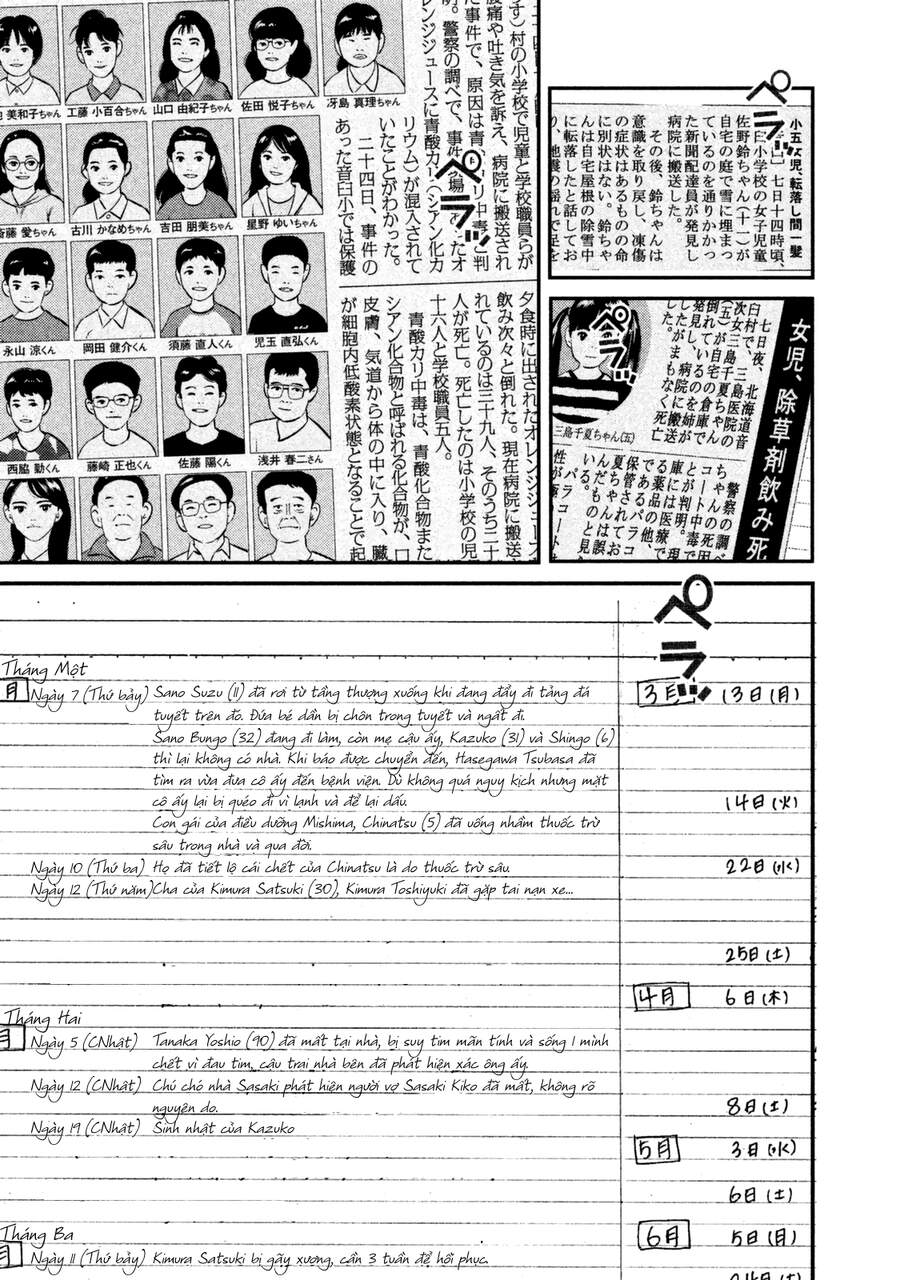 小五女児、転落し間一髪
七日十四時頃、
臼小学校の女子児童
佐野鈴ちゃん(十一)が
自宅の庭で雪に埋まっ
ているのを通りかかっ
た新聞配達員が発見し
病院に搬送した。
その後、鈴ちゃんは
意識を取り戻し、凍傷
の症状はあるものの命
に別状はない。鈴ちゃ
んは自宅屋根の除雪中
に転落したと話してお
ペラッ
す)村の小学校で児童と学校職員らが
腹痛や吐き気を訴え、病院に搬送され
た事件で、原因は青
リ中毒と判
明。警察の調べで、事件
場
あったオ
レンジジュースに青酸カリ(シアン化カ
リウム)が混入されて
いたことがわかった。
二十四日、事件の
あった音臼小では保護
ペラッ
美和子ちゃん
工藤 小百合ちゃん
山口 由紀子ちゃん
佐田 悦子ちゃん
冴島 真理ちゃん
斎藤 愛ちゃん
古川 かなめちゃん
吉田 朋美ちゃん
星野 ゆいちゃん
永山 涼くん
岡田 健介くん
須藤 直人くん
児玉 直弘くん
西脇 勤くん
藤崎 正也くん
佐藤 陽くん
浅井 春二さん
夕食時に出されたオレンジジュース
飲み次々と倒れた。現在病院に搬送
れているのは三十九人、そのうち二十
人が死亡。死亡したのは小学校の児
十六人と学校職員五人。
青酸カリ中毒は、青酸化合物また
シアン化合物と呼ばれる化合物が、口
皮膚、気道から体の中に入り、臓
が細胞内低酸素状態となることで起
女児、除草剤飲み死
七日夜、北海道音
臼村で、三島医院の
次女三島千夏ちゃん
(五)が自宅の倉庫で
倒れているのを姉が
発見し、病院に搬送
したがまもなく死亡
した。
三島千夏ちゃん(五)
警察の調べ
ちゃんの死因
コート中毒で
とが判明。現
庫には医療で
る薬品の他、
であるパラコ
保管されてお
夏ちゃんは誤
んだものと見
いる。
パラコート
性が極
ペラッ
ペラッ
Tháng Một
月 Ngày 7 (Thứ bảy) Sano Suzu (11) đã rơi từ tầng thượng xuống khi đang đẩy đi tảng đá
tuyết trên đó. Đứa bé dần bị chôn trong tuyết và ngất đi.
Sano Bungo (32) đang đi làm, còn mẹ cậu ấy, Kazuko (31) và Shingo (6)
thì lại không có nhà. Khi báo được chuyển đến, Hasegawa Tsubasa đã
tìm ra vừa đưa cô ấy đến bệnh viện. Dù không quá nguy kịch nhưng mặt
cô ấy lại bị quéo đi vì lạnh và để lại dấu.
Con gái của điều dưỡng Mishima, Chinatsu (5) đã uống nhầm thuốc trừ
sâu trong nhà và qua đời.
Ngày 10 (Thứ ba) Họ đã tiết lộ cái chết của Chinatsu là do thuốc trừ sâu.
Ngày 12 (Thứ năm) Cha của Kimura Satsuki (30), Kimura Toshiyuki đã gặp tai nạn xe...
Tháng Hai
月 Ngày 5 (CNhật) Tanaka Yoshio (90) đã mất tại nhà, bị suy tim mãn tính và sống 1 mình
chết vì đau tim, cậu trai nhà bên đã phát hiện xác ông ấy.
Ngày 12 (CNhật) Chú chó nhà Sasaki phát hiện người vợ Sasaki Kiko đã mất, không rõ
nguyên do.
Ngày 19 (CNhật) Sinh nhật của Kazuko
Tháng Ba
月 Ngày 11 (Thứ bảy) Kimura Satsuki bị gãy xương, cần 3 tuần để hồi phục.
3月 13日(月)
14日(火)
22日(水)
25日(土)
4月 6日(木)
8日(土)
5月 3日(水)
6日(土)
6月 5日(月)
24日(土)